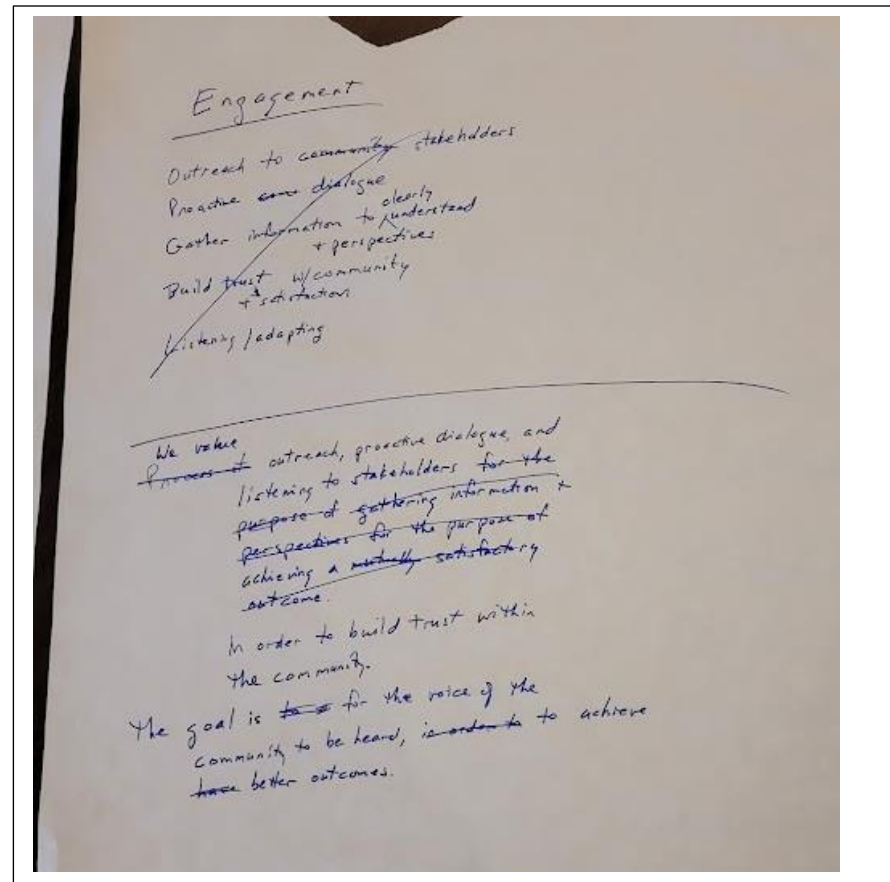 Engagement
Outreach to community stakeholders
Proactive dialogue
clearly
Gather information to understand
+ perspectives
Build trust w/community
+ satisfaction
Listening / adapting
We value
Process of outreach, proactive dialogue, and
listening to stakeholders for the
purpose of gathering information +
perspectives for the purpose of
achieving a mutually satisfactory
outcome.
In order to build trust within
the community.
The goal is for the voice of the
community to be heard, in order to to achieve
have better outcomes.